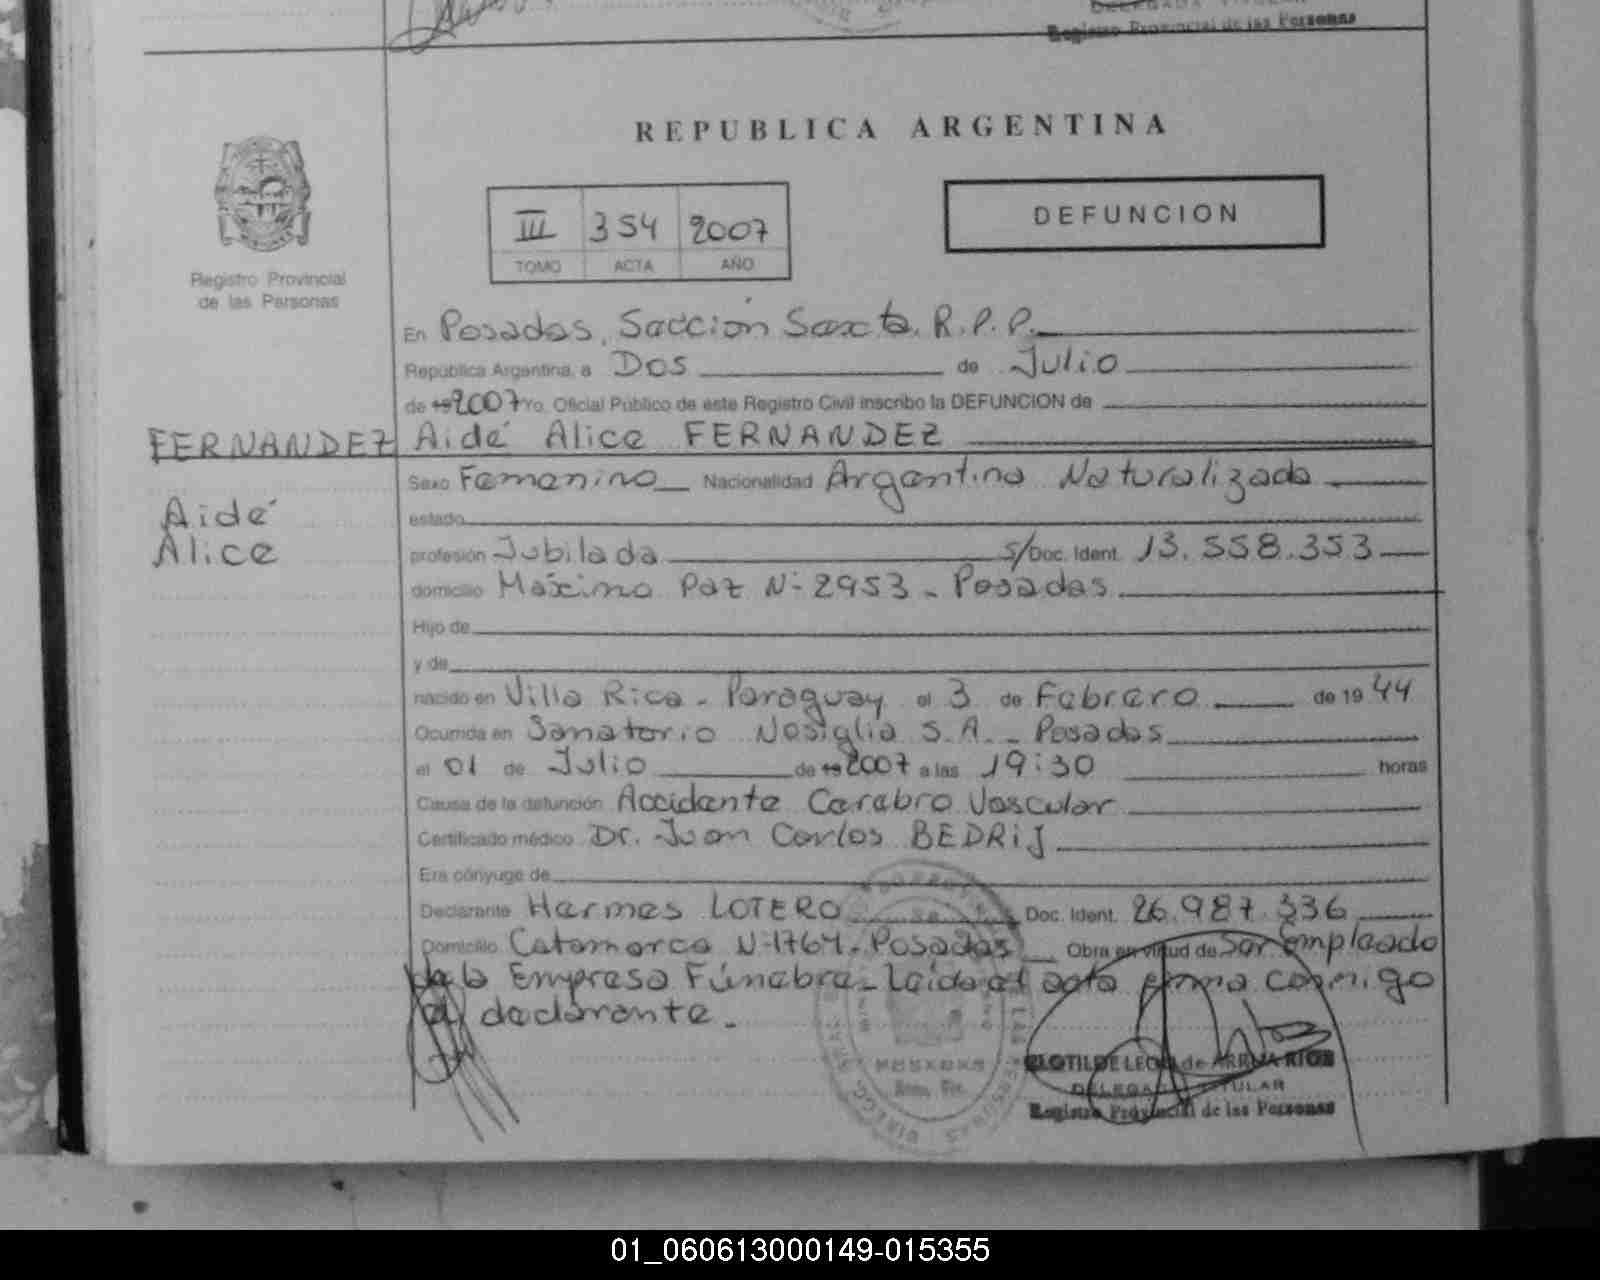 Registro Provincial de las Personas
REPUBLICA ARGENTINA
Registro Provincial
de las Personas
III 354 2007
TOMO ACTA AÑO
DEFUNCION
En Posadas, Sección Sexta, R.P.P.
República Argentina, a Dos de Julio
de 19 2007 Yo, Oficial Público de este Registro Civil inscribo la DEFUNCION de
FERNANDEZ Aidé Alice FERNANDEZ
Sexo Femenino Nacionalidad Argentina Naturalizada
Aidé
estado
Alice
profesión Jubilada s/Doc. Ident. 13.558.353
domicilio Máximo Paz N- 2953 - Posadas
Hijo de
y de
nacido en Villa Rica - Paraguay el 3 de Febrero de 19 44
Ocurrida en Sanatorio Nosiglia S.A. - Posadas
el 01 de Julio de 19 2007 a las 19:30 horas
Causa de la defunción Accidente Cerebro Vascular
Certificado médico Dr. Juan Carlos BEDRIJ
Era cónyuge de
Declarante Hermes LOTERO Doc. Ident. 26.987.336
Domicilio Catamarca N-1764 - Posadas Obra en virtud de Ser Empleado
de la Empresa Fúnebre - Leída el acta firma conmigo
el declarante.
POSADAS
CLOTILDE LEON de ARRUA RIOS
DELEGADA TITULAR
Registro Provincial de las Personas
01_060613000149-015355